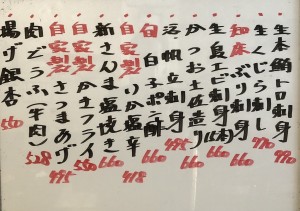 生本鮪トロ刺身 970
生くじら刺し 770
和牛ぶり刺身 660
生鳥エビ刺身(5本) 660
かつお土佐造り 660
活帆立刺身 495
旬 白子ポン酢 660
自家製いか塩辛 418
新さんま塩焼き 660
自家製かきフライ 550
自家製さつまあげ 495
肉どうふ(牛肉) 528
揚げ銀杏 550